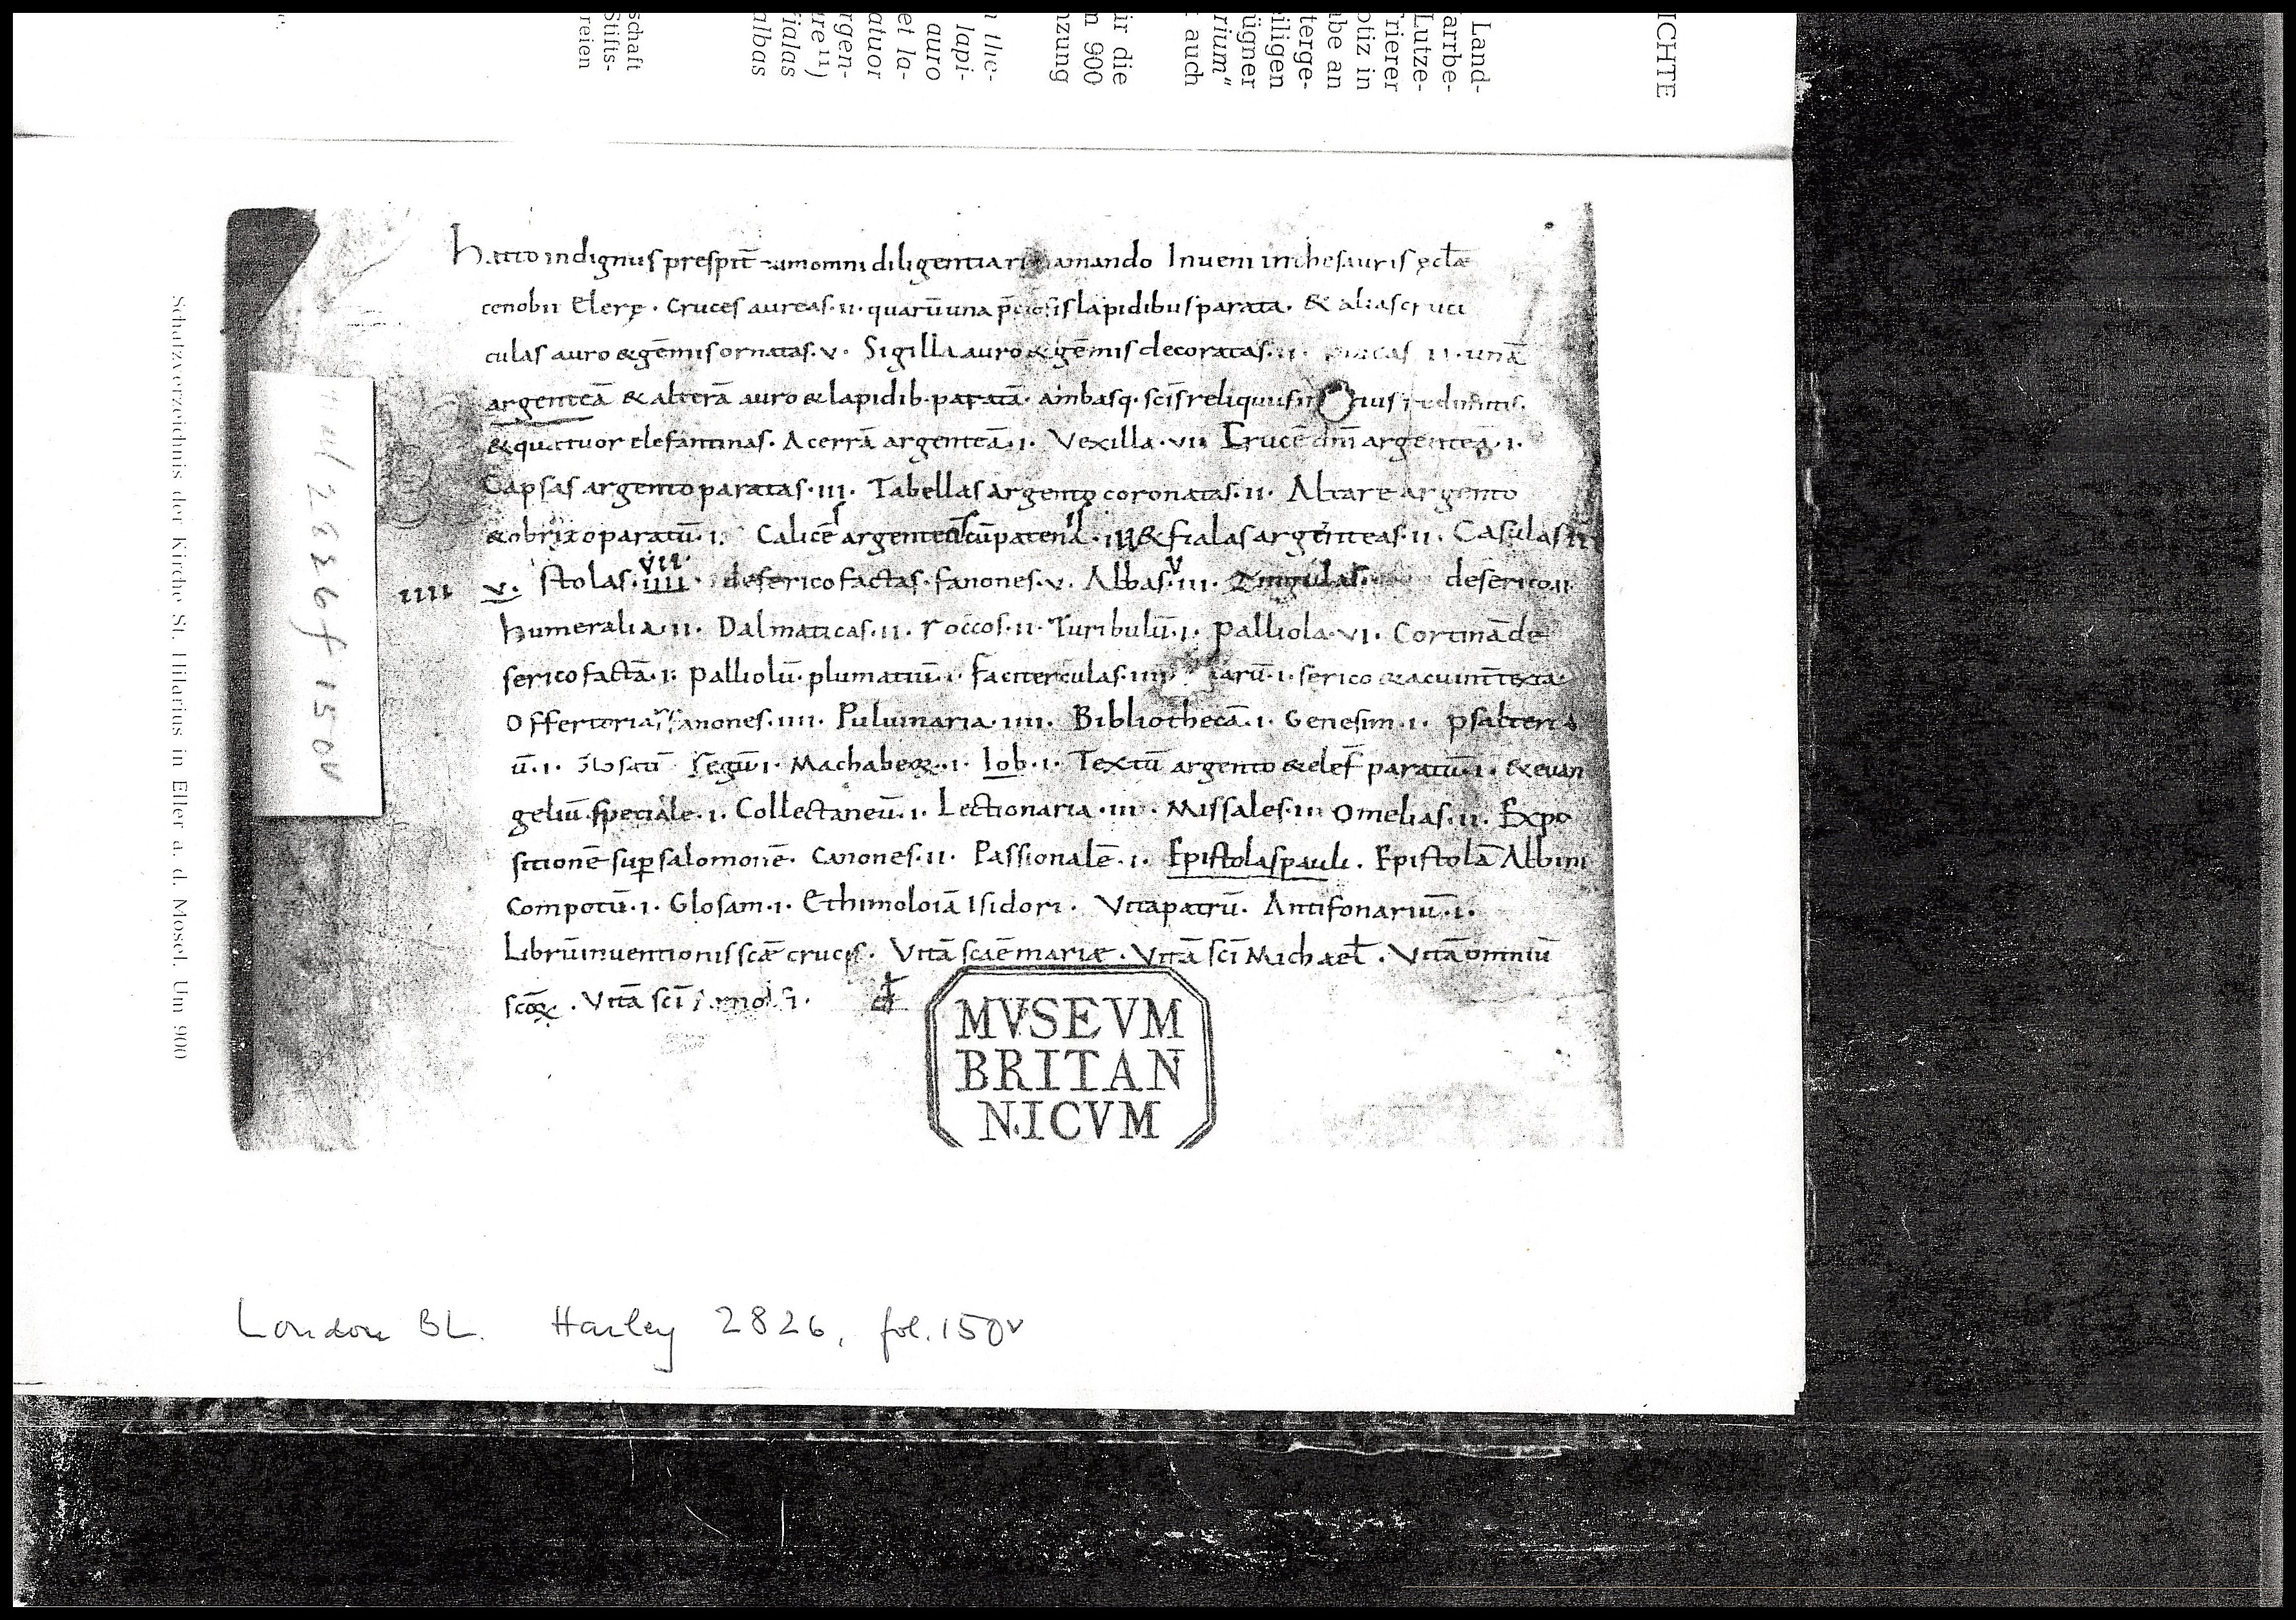 ICHTE
Land-
arrbe-
Lutze-
rierer
otiz in
be an
terge-
eiligen
ügner
rium"
auch
ür die
n 900
nzung
n the-
lapi-
auro
et la-
atuor
rgen-
are¹¹)
fialas
albas
schaft
Stifts-
reien
hatto indignus presbit̄ omni diligentia amando Inueni in thesauris ęcłae
cenobii Elerę. Cruces aureas.ii. quarū una p̄ciosis lapidibus parata. & alias cruci
culas auro & gēmis ornatas.v. Sigilla auro & gēmis decoratas.ii. ii. unā
argenteā & alterā auro & lapidib. paratā. ambasq. scīs reliquiis
& quattuor elefantinas. Acerrā argenteā.i. Vexilla.vii Crucē dn̄i argenteā.i.
Capsas argento paratas.iii. Tabellas argento coronatas.ii. Altare argento
& obrizo paratū.i. Calicēs argenteūs cū patenā.iii & fialas argenteas.ii. Casulas
iiii v. stolas.iiii vii. de serico factas. fanones.v. Albas.v iii. Zingulas de serico.ii
humeralia.ii. Dalmaticas.ii. roccos.ii. Turibulū.i. palliola.vi. Cortinā de
serico factā.i. palliolū plumatiū.i. faciterculas.iiii i. serico & acu int̄exta
Offertoria fanones.iiii. Puluinaria.iiii. Bibliothecā.i. Genesim.i. psalteri
ū.i. regū i. Machabeoꝝ.i. Iob.i. Textū argento & elef̄ paratū.i. & euan
geliū speciale.i. Collectaneū.i. Lectionaria.iii. Missales.iii Omelias.ii. Expo
sitionē sup salomonē. Canones.ii. Passionalē.i. Epistolas pauli. Epistolā Albini
Compotū.i. Glosam.i. Ethimoloiā Isidori. Vita patrū. Antifonariū.i.
Librū inuentionis scāe crucis. Vitā scāe mariæ. Vitā scī Michaeł. Vitā omniū
scōꝝ. Vitā scī
MVSEVM
BRITAN
NICVM
Harl 2826 f 150v
Schatzverzeichnis der Kirche St. Hilarius in Eller a. d. Mosel. Um 900
London BL. Harley 2826, fol. 150v